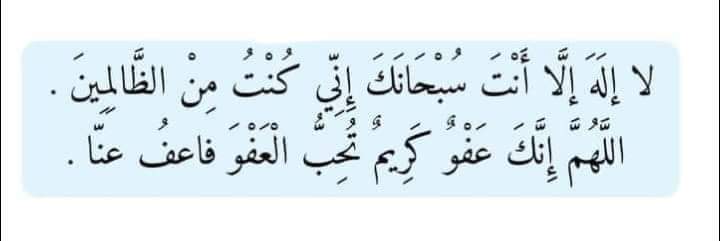 لا إِلَهَ إِلَّا أَنْتَ سُبْحَانَكَ إِنِّي كُنْتُ مِنْ الظَّالِمِينَ .
اللَّهُمَّ إِنَّكَ عَفْوٌ كَرِيمٌ تُحِبُّ الْعَفْوَ فاعفُ عنّا .